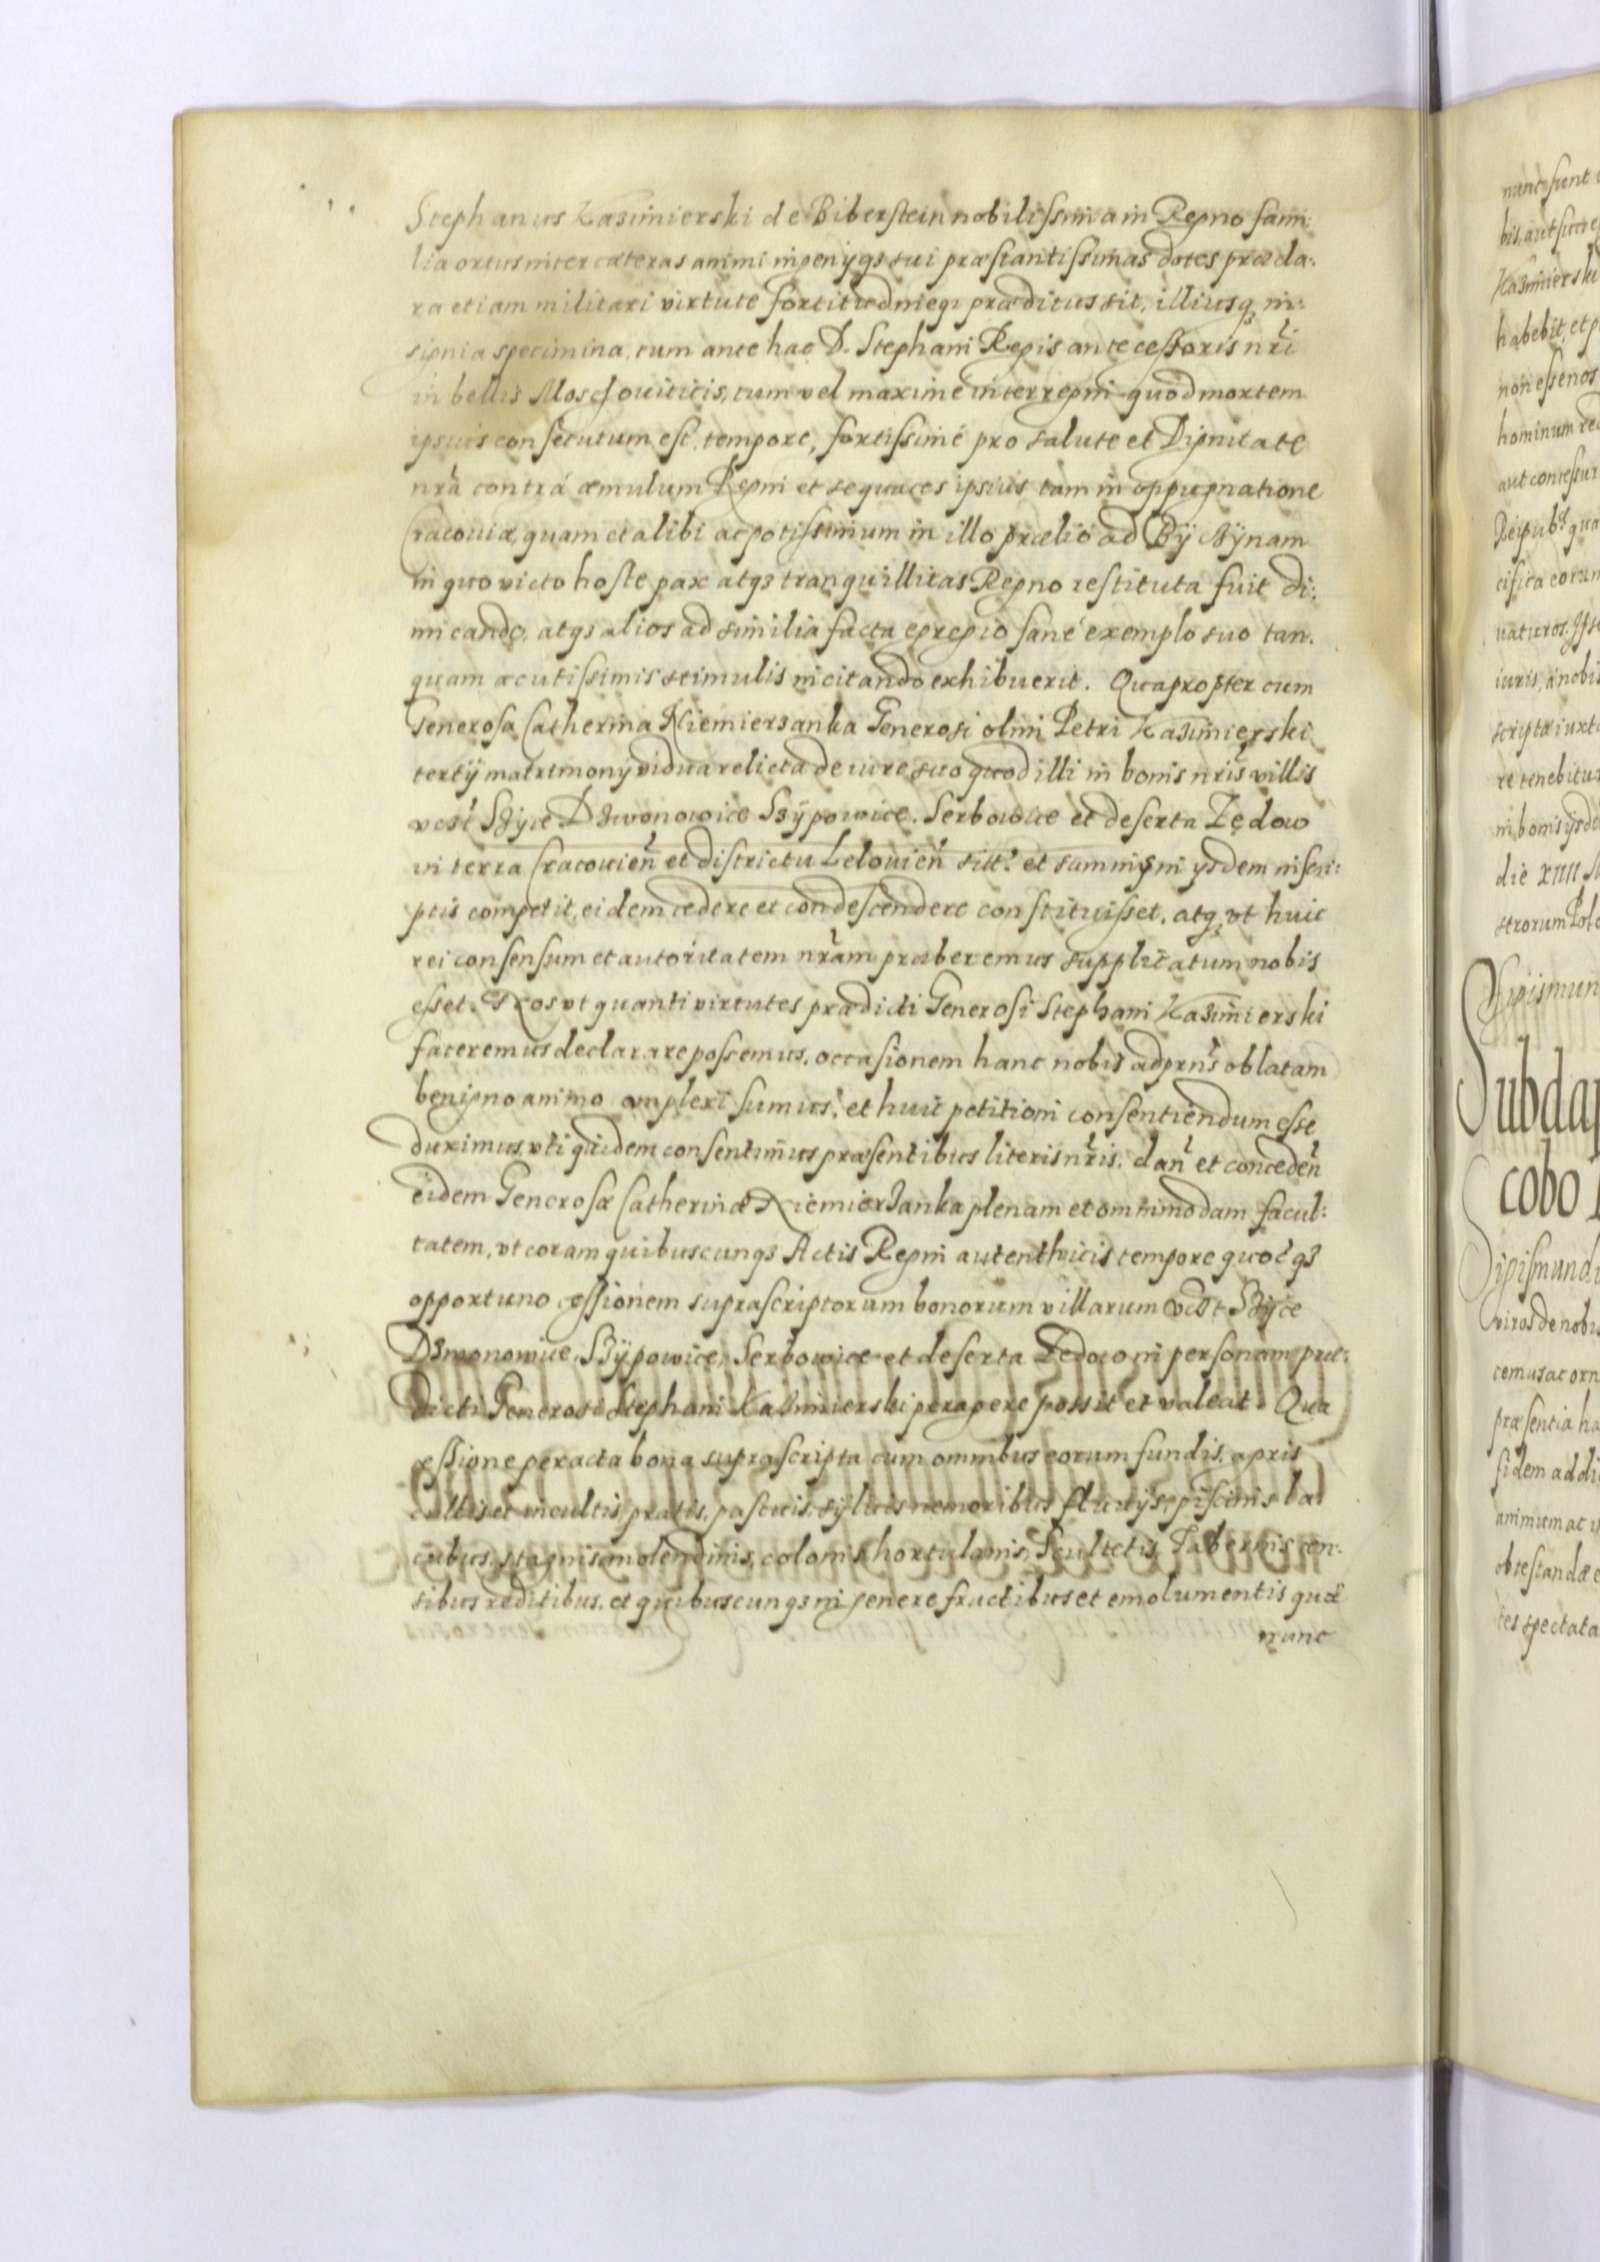 Stephanus Kazimierski de Biberstein nobilissima in Regno fami:
lia ortus inter cæteras animi ingenijq3 sui præstantissimas dotes præcla:
ra etiam militari virtute fortitudineq3 præditus sit, illiusq3 in:
signia specimina, tum ante hac D. Stephani Regis antecessoris nr̃i
in bellis Moschouiticis, tum vel maximè interregni quod mortem
ipsius consecutum est, tempore, fortissimè pro salute et Dignitate
nr̃a contrà æmulum Regni et sequaces ipsius tam in oppugnatione
Cracouiæ, quam et alibi ac potissimum in illo prælio ad Bÿcÿnam
in quo victo hoste pax atq3 tranquillitas Regno restituta fuit di:
micando, atq3 alios ad similia facta egregio sanè exemplo suo tan.
quam acutissimis stimulis incitando exhibuerit. Quapropter cum
Generosa Catherina Niemierzanka Generosi olim Petri Kazimierski
tertij matrimonij vidua relicta de iure suo quod illi in bonis nr̃is villis
vczt̃ Szÿce Dzwonowice Bzÿpowice. Serbowice et deserta Zędow
in terra Cracouien̄ et districtu Lelouien̄ sit̃. et summis in ysdem inscri:
ptis competit, eidem cedere et condescendere constituisset. atq3 vt huic
rei consensum et autoritatem nr̃am præberemus supplicatum nobis
esset. Nos vt quanti virtutes prædicti Generosi Stephani Kazimierski
faceremus declarare possemus, occasionem hanc nobis ad prn̄s oblatam
benigno animo amplexi sumus, et huic petitioni consentiendum esse
duximus, vti quidem consentimus præsentibus literis nr̃is. dan̄ et conceden̄
eidem Generosæ Catherinæ Niemierzanka plenam et omnimodam facul:
tatem, vt coram quibuscunq3 Actis Regni autenthicis tempore quocq3
opportuno cessionem suprascriptorum bonorum villarum vczt Szÿce
Dzwonowice, Bzÿpowice, Serbowice et deserta Zedow in personam præ:
dicti Generosi Stephani Kazimierski peragere possit et valeat. Qua
cessione peracta bona suprascripta cum omnibus eorum fundis, agris
cultis et incultis, pratis, pascuis, syluis nemoribus fluuijs, piscinis la
cubus, stagnis molendinis, colonis hortulanis, Scultetis, Tabernis cen:
sibus reditibus, et quibuscunq3 in genere fructibus et emolumentis quæ
nunc
nunc sient
Kazimierski
habebit, et p
non esse nos
hominum
iuris, à nobis
re tenebitur
die XIIII
Subda
cobo
viros de nobis
cemus ac orn
præsentia ha
fidem addi
animum ac
obtestandæ
tes spectata